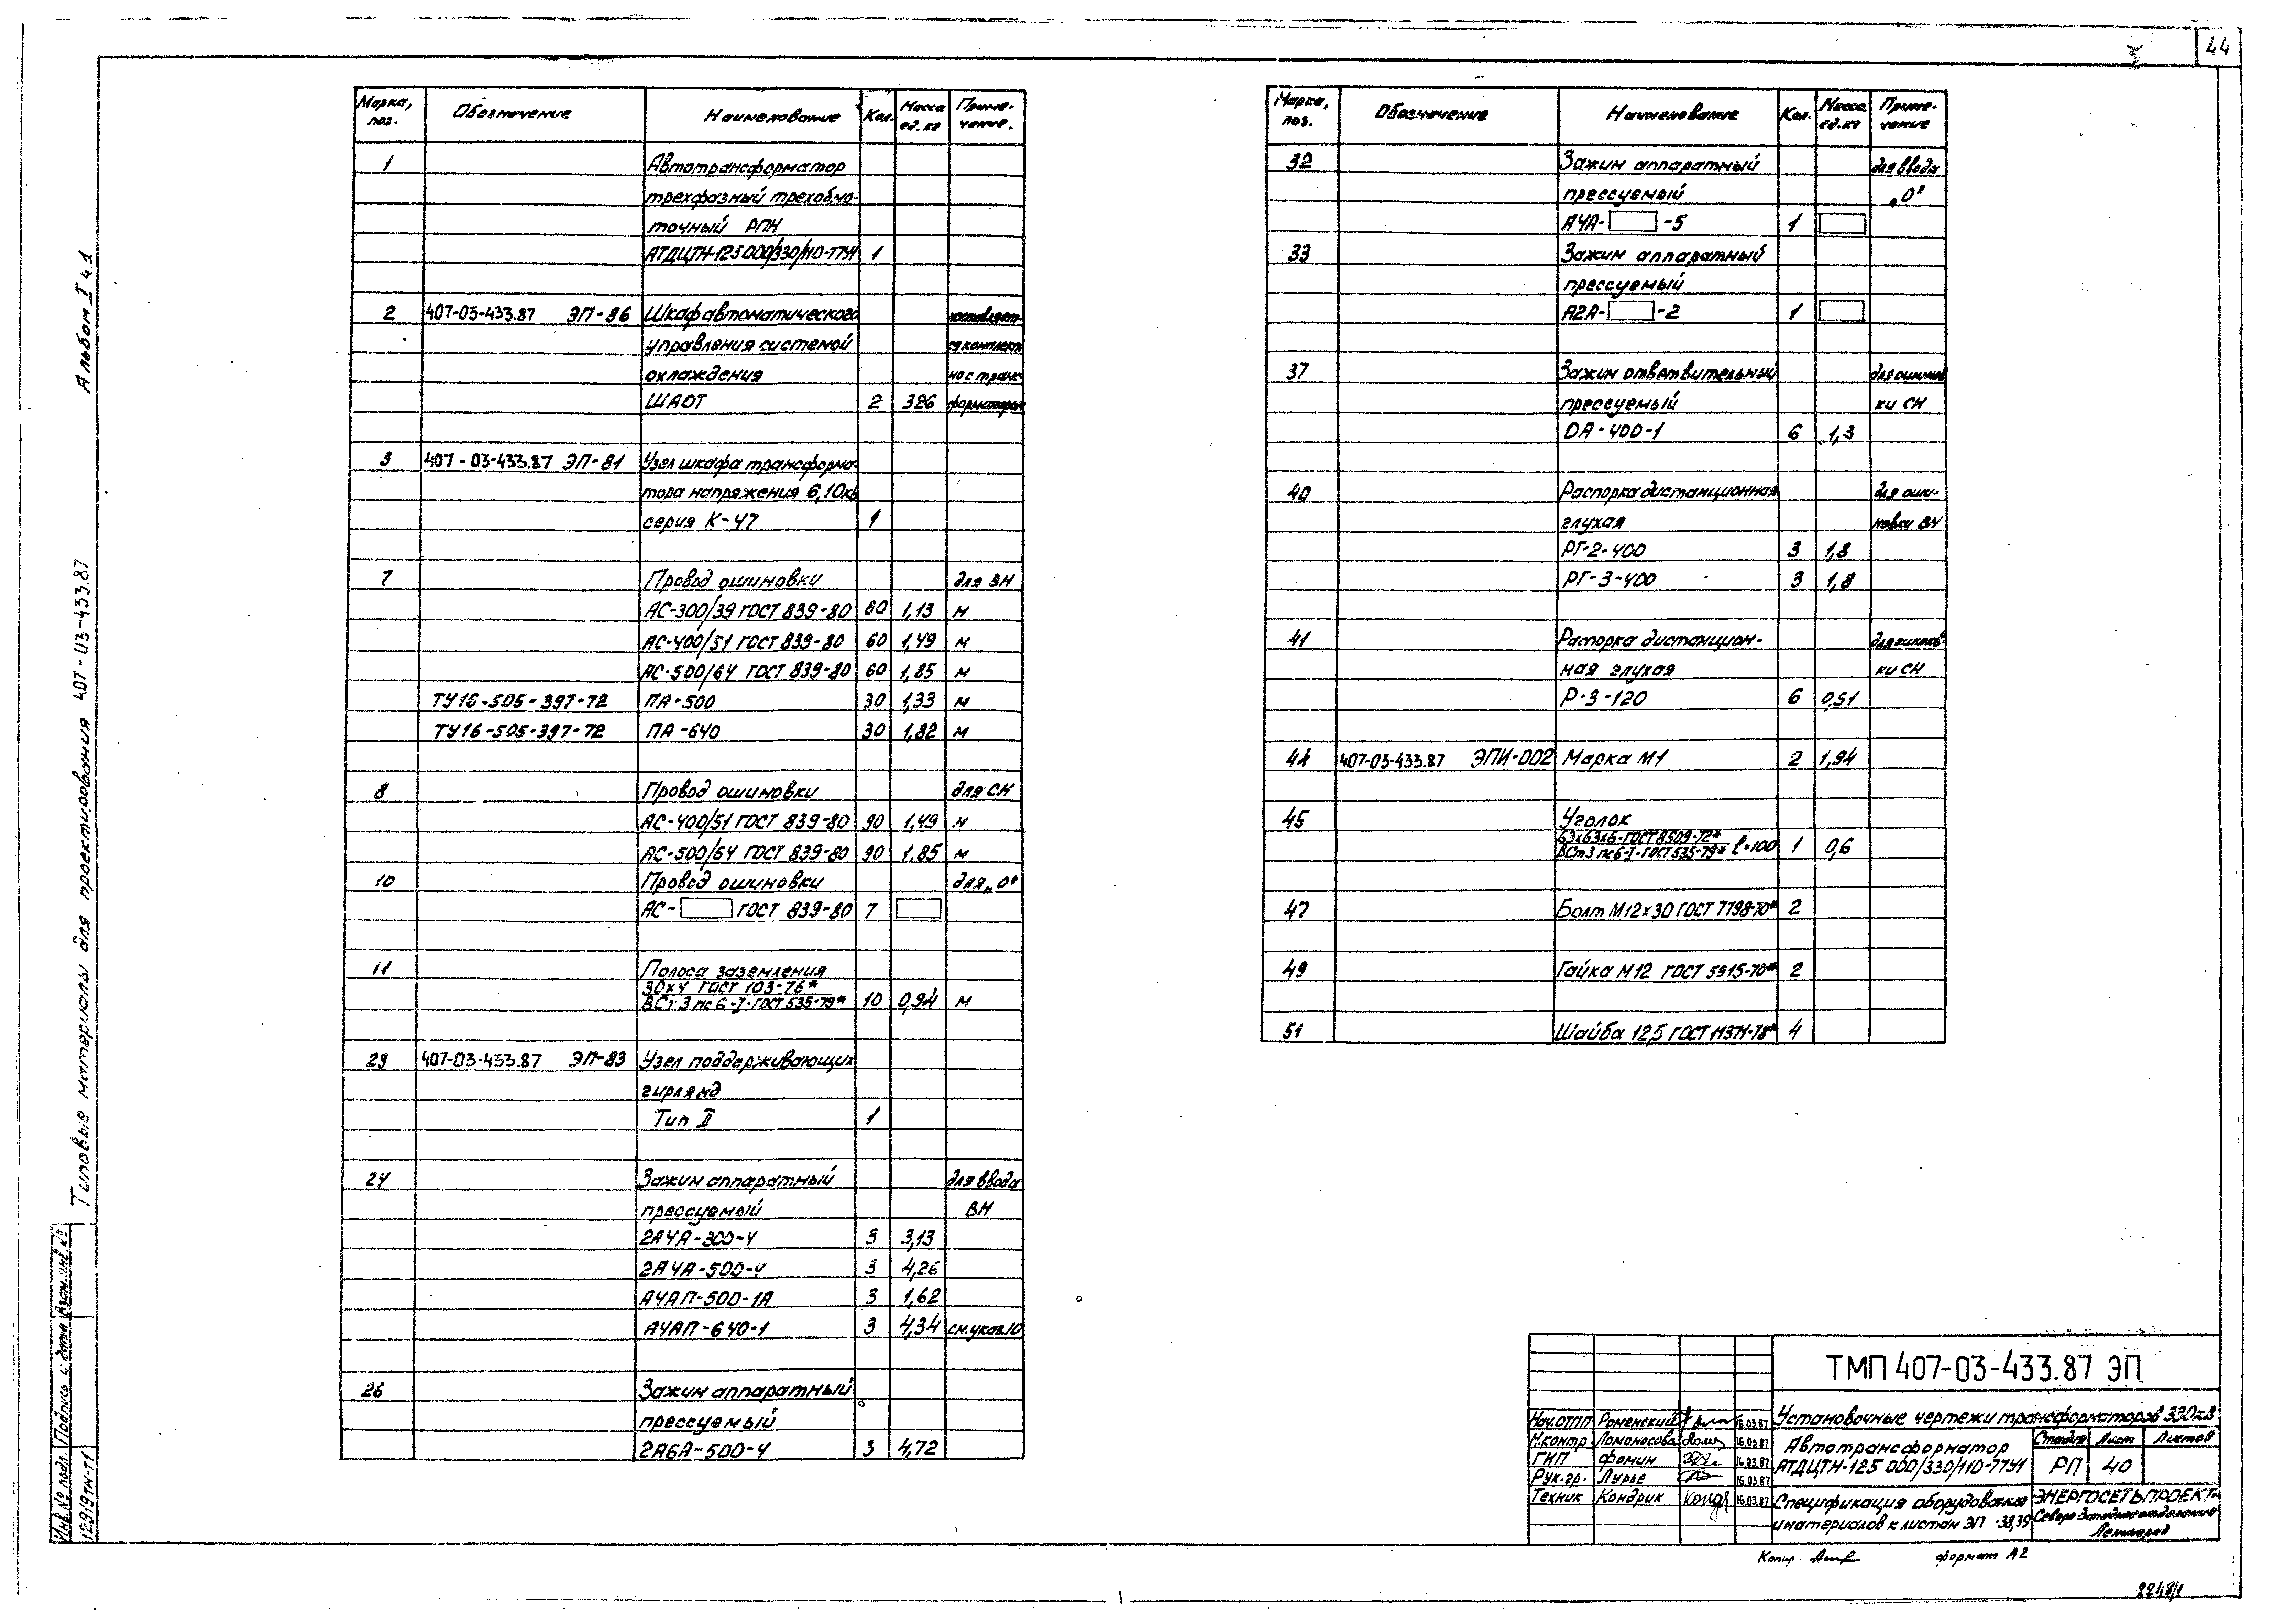 44
Альбом I ч.1
Типовые материалы для проектирования 407-03-433.87
Инв.№ подл. Подпись и дата Взам.инв.№
12919тм-т1
Марка, поз. Обозначение Наименование Кол. Масса ед.кг Приме-чание.
1 Автотрансформатор
трехфазный трехобмо-
точный РПН
АТДЦТН-125000/330/110-77У1 1
2 407-03-433.87 ЭП-86 Шкаф автоматического поставляет-
управления системой ся комплект-
охлаждения но с транс-
ШАОТ 2 326 форматором
3 407-03-433.87 ЭП-81 Узел шкафа трансформа-
тора напряжения 6,10кв
серия К-47 1
7 Провод ошиновки для ВН
АС-300/39 ГОСТ 839-80 60 1,13 м
АС-400/51 ГОСТ 839-80 60 1,49 м
АС-500/64 ГОСТ 839-80 60 1,85 м
ТУ16-505-397-72 ПА-500 30 1,33 м
ТУ16-505-397-72 ПА-640 30 1,82 м
8 Провод ошиновки для СН
АС-400/51 ГОСТ 839-80 90 1,49 м
АС-500/64 ГОСТ 839-80 90 1,85 м
10 Провод ошиновки для „0"
АС- ГОСТ 839-80 7
11 Полоса заземления
30х4 ГОСТ 103-76*
ВСт3пс6-I-ГОСТ 535-79* 10 0,94 м
23 407-03-433.87 ЭП-83 Узел поддерживающих
гирлянд
Тип II 1
24 Зажим аппаратный для ввода
прессуемый ВН
2А4А-300-4 3 3,13
2А4А-500-4 3 4,26
А4АП-500-1А 3 1,62
А4АП-640-1 3 4,34 см.указ.10
26 Зажим аппаратный
прессуемый
2А6А-500-4 3 4,72
Марка, поз. Обозначение Наименование Кол. Масса ед.кг Приме-чание
32 Зажим аппаратный для ввода
прессуемый „0"
А4А- -5 1
33 Зажим аппаратный
прессуемый
А2А- -2 1
37 Зажим ответвительный для ошинов-
прессуемый ки СН
ОА-400-1 6 1,3
40 Распорка дистанционная для оши-
глухая новки ВН
РГ-2-400 3 1,8
РГ-3-400 3 1,8
41 Распорка дистанцион- для ошинов-
ная глухая ки СН
Р-3-120 6 0,51
44 407-03-433.87 ЭПИ-002 Марка М1 2 1,94
45 Уголок
63х63х6-ГОСТ 8509-72*
ВСт3пс6-I-ГОСТ 535-79* ℓ=100 1 0,6
47 Болт М12х30 ГОСТ 7798-70* 2
49 Гайка М12 ГОСТ 5915-70* 2
51 Шайба 12,5 ГОСТ 11371-78* 4
ТМП 407-03-433.87 ЭП
Установочные чертежи трансформаторов 330кВ
Нач.ОТПП Роменский 16.03.87
Н.контр Ломоносова 16.03.87
ГИП Фомин 16.03.87
Рук.гр. Лурье 16.03.87
Техник Кондрик 16.03.87
Автотрансформатор
АТДЦТН-125 000/330/110-77У1
Стадия Лист Листов
РП 40
Спецификация оборудования
и материалов к листам ЭП -38,39
ЭНЕРГОСЕТЬПРОЕКТ
Северо-Западное отделение
Ленинград
Копир. формат А2
2248/1